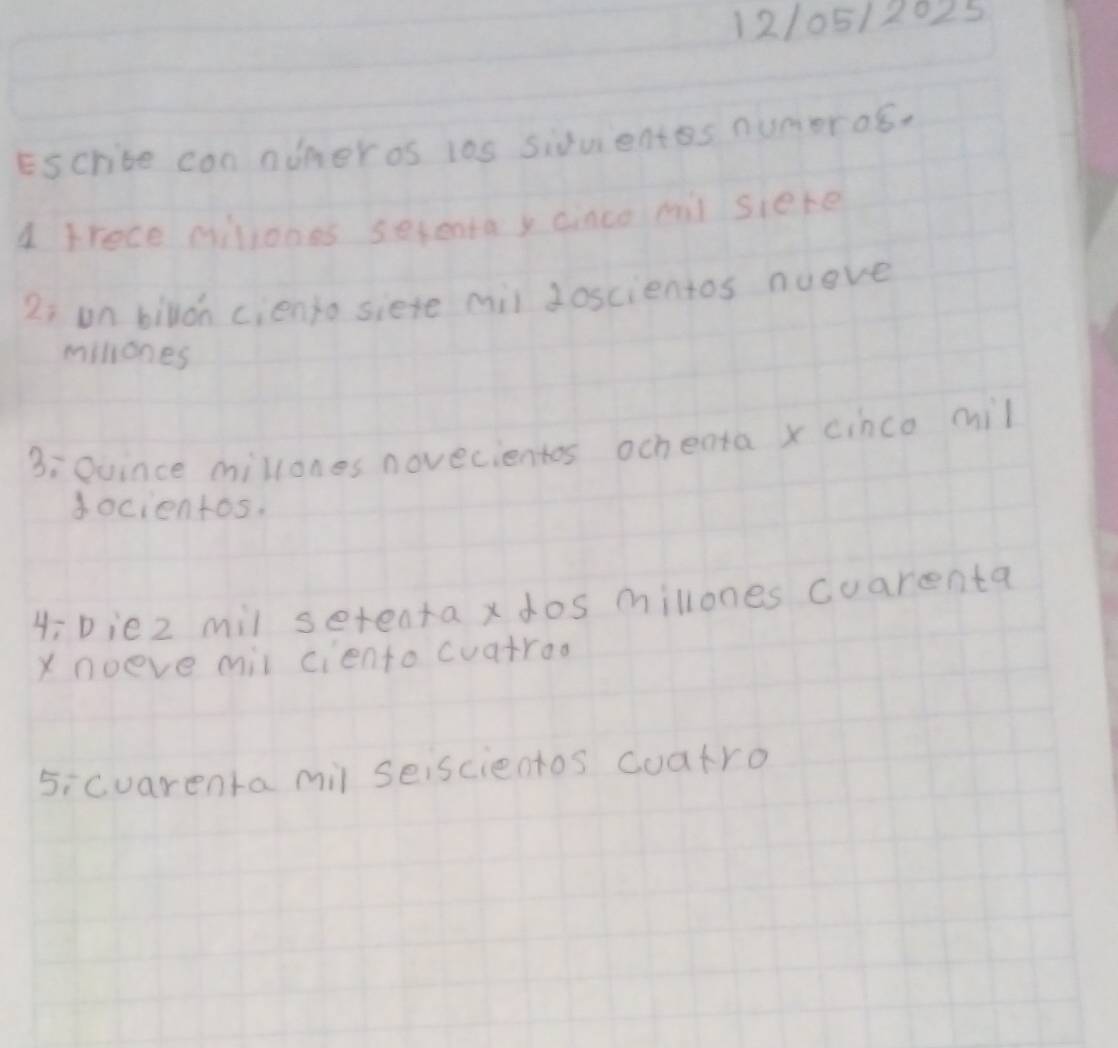 12/05/2025
Escribe con números los siguientes numeros.
1 trece millones setenta y cinco mil siete
2; un billón ciento siete mil doscientos nueve
millones
3; Quince millones novecientos ochenta y cinco mil
docientos.
4; Diez mil setenta y dos millones cuarenta
y nueve mil ciento cuatroo
5; cuarenta mil seiscientos cuatro